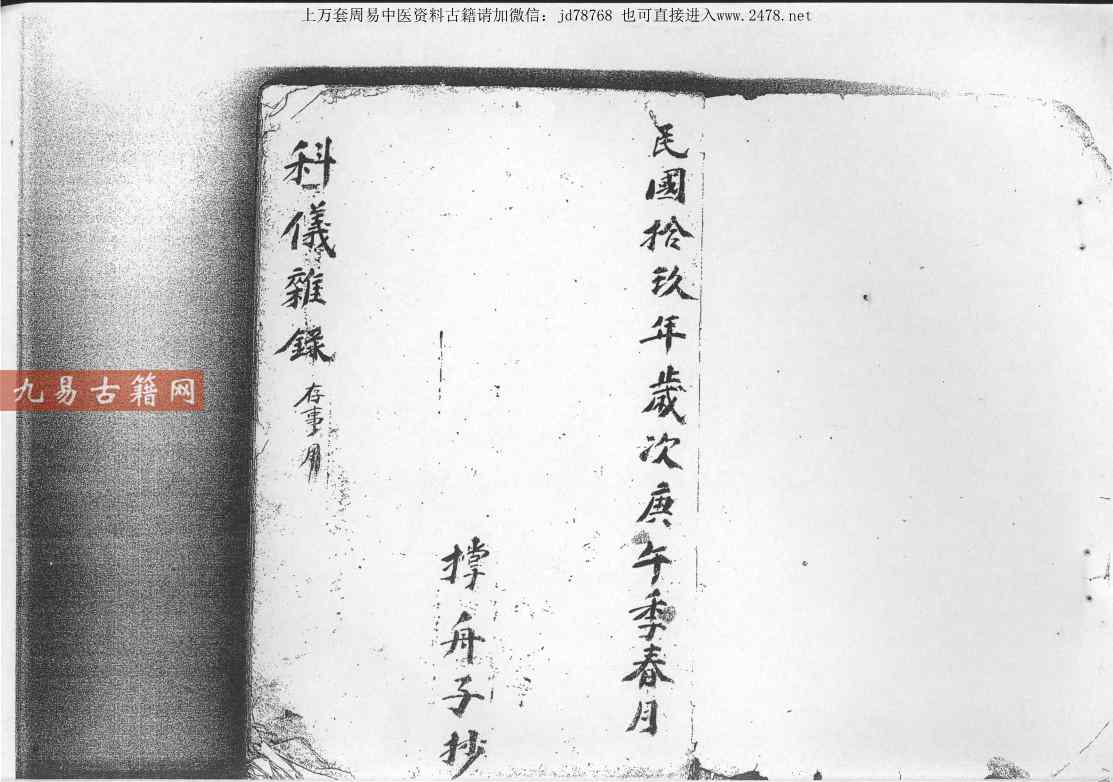 上万套周易中医资料古籍请加微信：jd78768 也可直接进入www.2478.net
民國拾玖年歲次庚午季春月
撑舟子抄
科儀雜錄 存事用
九易古籍网